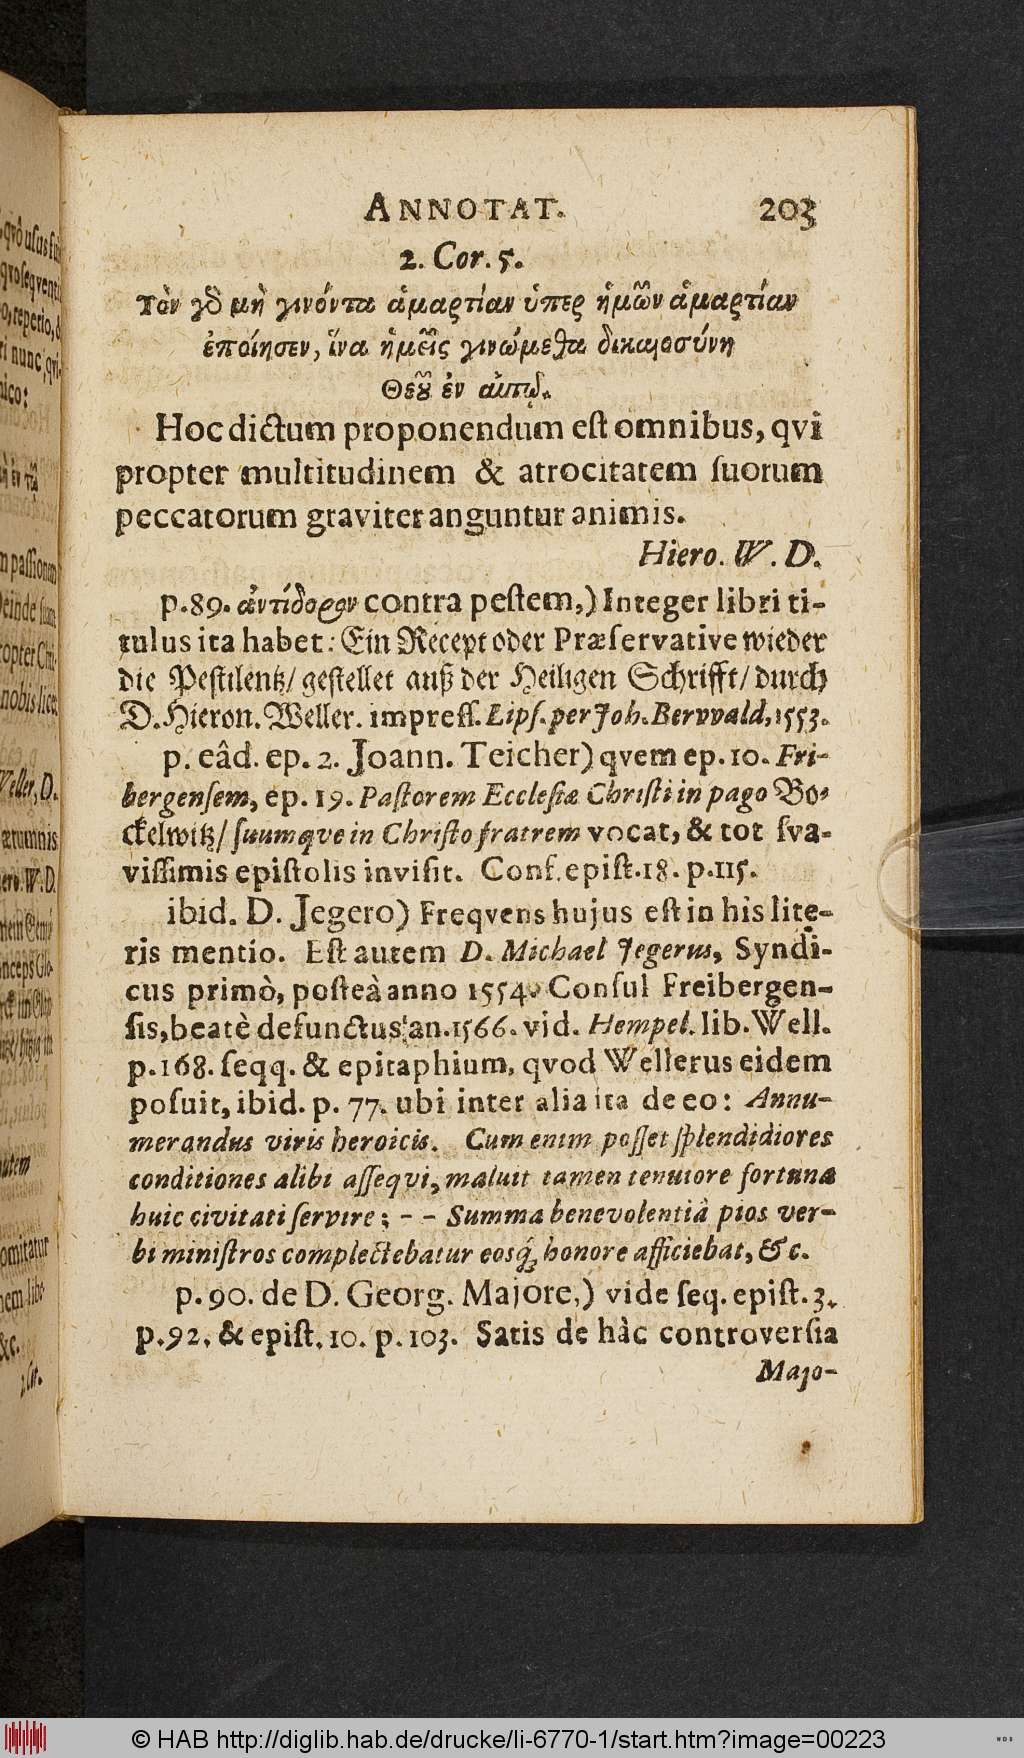 ANNOTAT. 203
2. Cor. 5.
Τὸν γὸ μὴ γινόντα ἁμαρτίαν ὑπερ ἡμῶν ἁμαρτίαν
ἐποίησεν, ἵνα ἡμεῖς γινώμεθα δικαιοσύνη
Θεȣ͂ ἐν αὐτῷ.
Hoc dictum proponendum eſt omnibus, qvi
propter multitudinem & atrocitatem ſuorum
peccatorum graviter anguntur animis.
Hiero. W. D.
p. 89. contra peſtem,) Integer libri ti-
tulus ita habet: Ein Recept oder Præſervative wieder
die Peſtilentz/ geſtellet auß der Heiligen Schrifft/ durch
D. Hieron. Weller. impreſſ. Lipſ. per Joh. Bervvald, 1553.
p. eâd. ep. 2. Joann. Teicher) qvem ep. 10. Fri-
bergenſem, ep. 19. Paſtorem Eccleſiæ Chriſti in pago Bo-
ckelwitz/ ſuumque in Chriſto fratrem vocat, & tot ſva-
viſſimis epiſtolis inviſit. Conf. epiſt. 18. p. 115.
ibid. D. Jegero) Freqvens hujus eſt in his lite-
ris mentio. Eſt autem D. Michael Jegerus, Syndi-
cus primò, poſteà anno 1554. Conſul Freibergen-
ſis, beatè defunctus an. 1566. vid. Hempel. lib. Well.
p. 168. ſeqq. & epitaphium, qvod Wellerus eidem
poſuit, ibid. p. 77. ubi inter alia ita de eo: Annu-
merandus viris heroicis. Cum enim poſſet ſplendidiores
conditiones alibi aſſequi, maluit tamen tenuiore fortuna
huic civitati ſervire; - - Summa benevolentiâ pios ver-
bi miniſtros complectebatur eosq́; honore afficiebat, &c.
p. 90. de D. Georg. Majore,) vide ſeq. epiſt. 3.
p. 92. & epiſt. 10. p. 103. Satis de hàc controverſia
Majo-
© HAB http://diglib.hab.de/drucke/li-6770-1/start.htm?image=00223